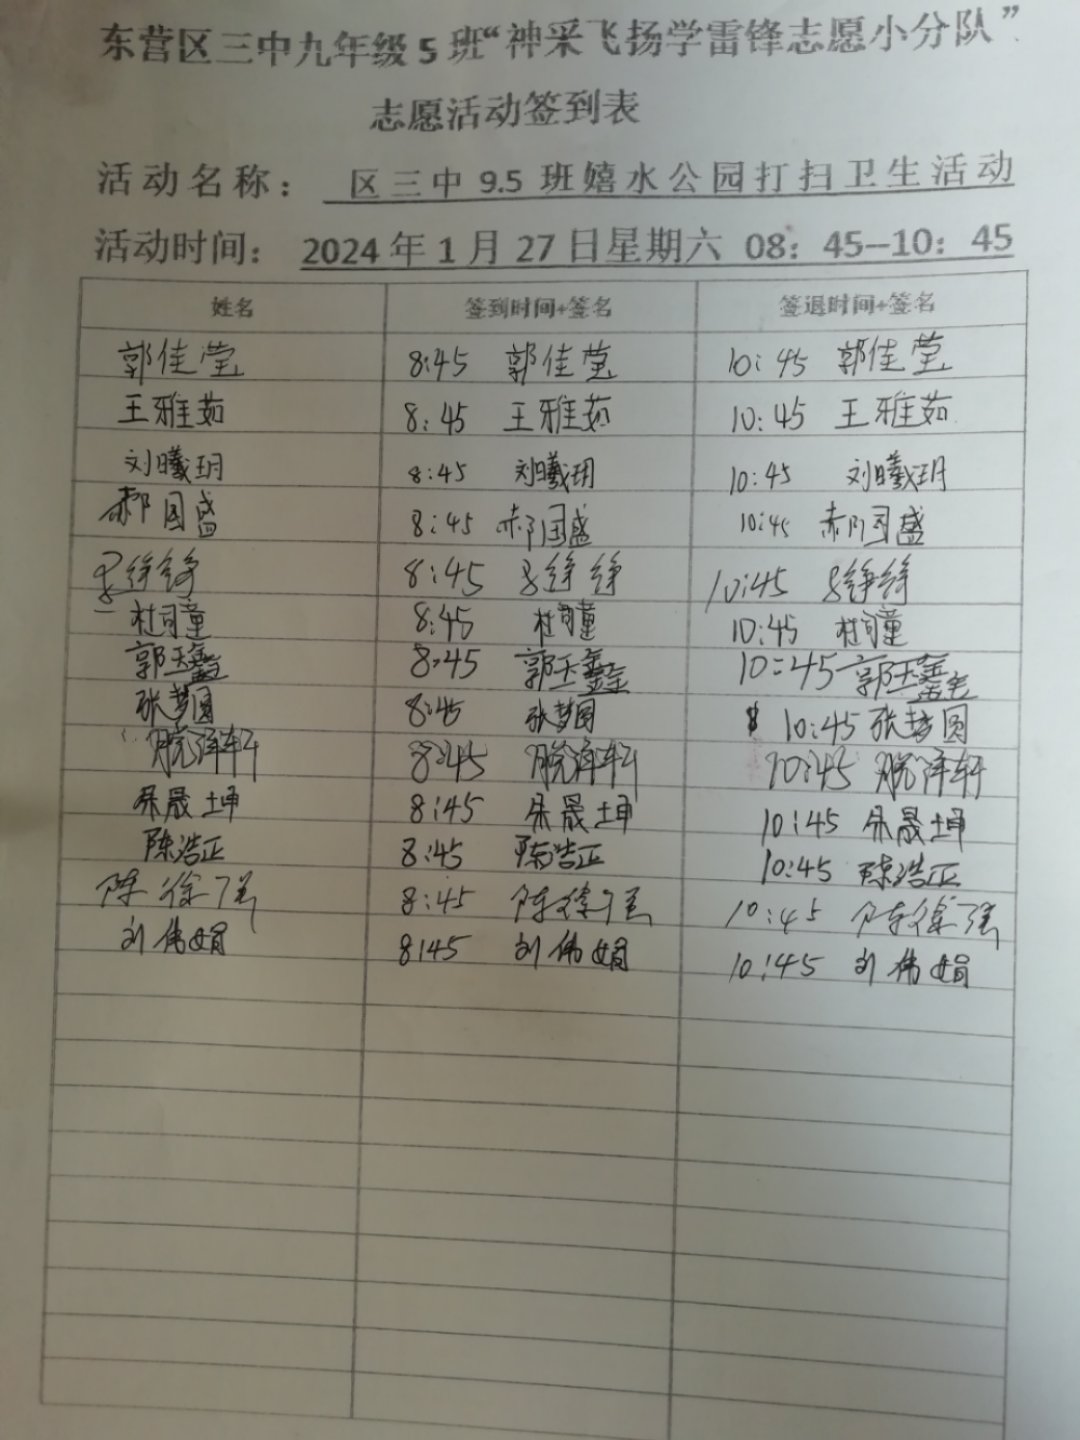 东营区三中九年级5班“神采飞扬学雷锋志愿小分队”
志愿活动签到表
活动名称： 区三中9.5班嬉水公园打扫卫生活动
活动时间： 2024年1月27日星期六 08：45—10：45
姓名 签到时间+签名 签退时间+签名
郭佳莹 8:45 郭佳莹 10:45 郭佳莹
王雅茹 8:45 王雅茹 10:45 王雅茹
刘曦玥 8:45 刘曦玥 10:45 刘曦玥
郝国盛 8:45 郝国盛 10:45 郝国盛
8:45 10:45
杜司童 8:45 杜司童 10:45 杜司童
郭玉鑫 8:45 郭玉鑫 10:45 郭玉鑫
张梦圆 8:45 张梦圆 10:45 张梦圆
8:45 10:45
晟坤 8:45 晟坤 10:45 晟坤
陈浩正 8:45 陈浩正 10:45 陈浩正
陈徐强 8:45 陈徐强 10:45 陈徐强
刘伟娟 8:45 刘伟娟 10:45 刘伟娟